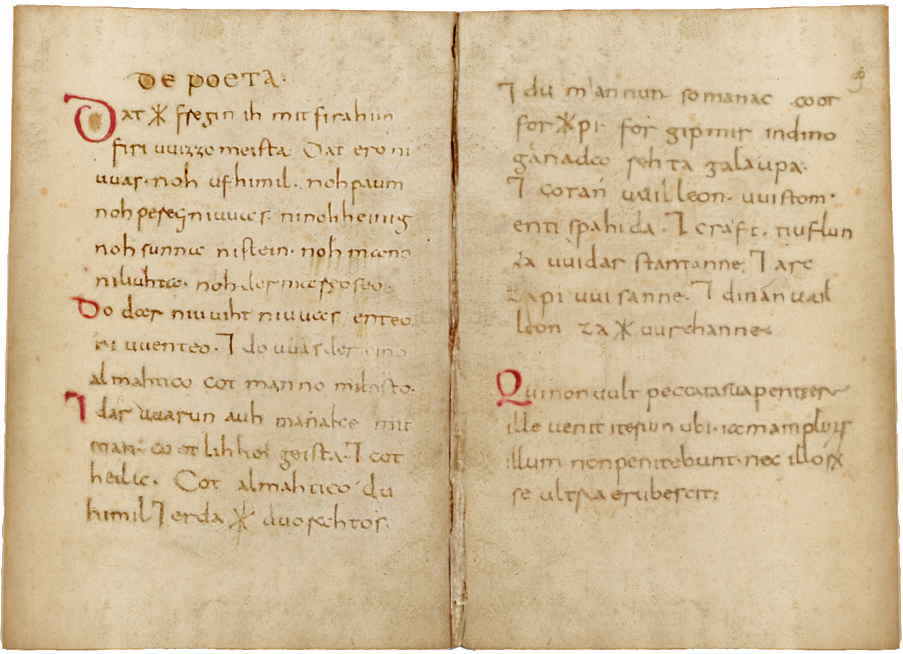 De poeta·
Dat ᛡ fregin ih mit firahim
firi uuizzo meista. Dat ero ni
uuas· noh ufhimil· noh paum
noh peregniuuas· ninohheinig
noh sunna nistein· noh mano
niliuhta· noh der maręoseo·
Do dar niuuiht niuuas enteo
ni uuenteo· ⁊ do uuas der eino
almahtico cot manno miltisto·
⁊ dar uuarun auh manake mit
man· cootlihhe geista· ⁊ cot
heilac· Cot almahtico du
himil ⁊ erda ᛡ uuorahtos·
⁊ du mannun somanac coot
forᛡpi· for gipmir indino
ganada rehta galaupa·
⁊ cotan uuilleon· uuistom·
enti spahida· ⁊ craft· tiuflun
za uuidar stantanne, ⁊ arc
zapi uuisanne· ⁊ dinan uuil
leon za ᛡ uurchanne·
Qui non uult peccata sua penitere
ille uenit iterum ubi· iam amplius
illum non penitebunt· nec illorꝝ
se ultra erubescit;